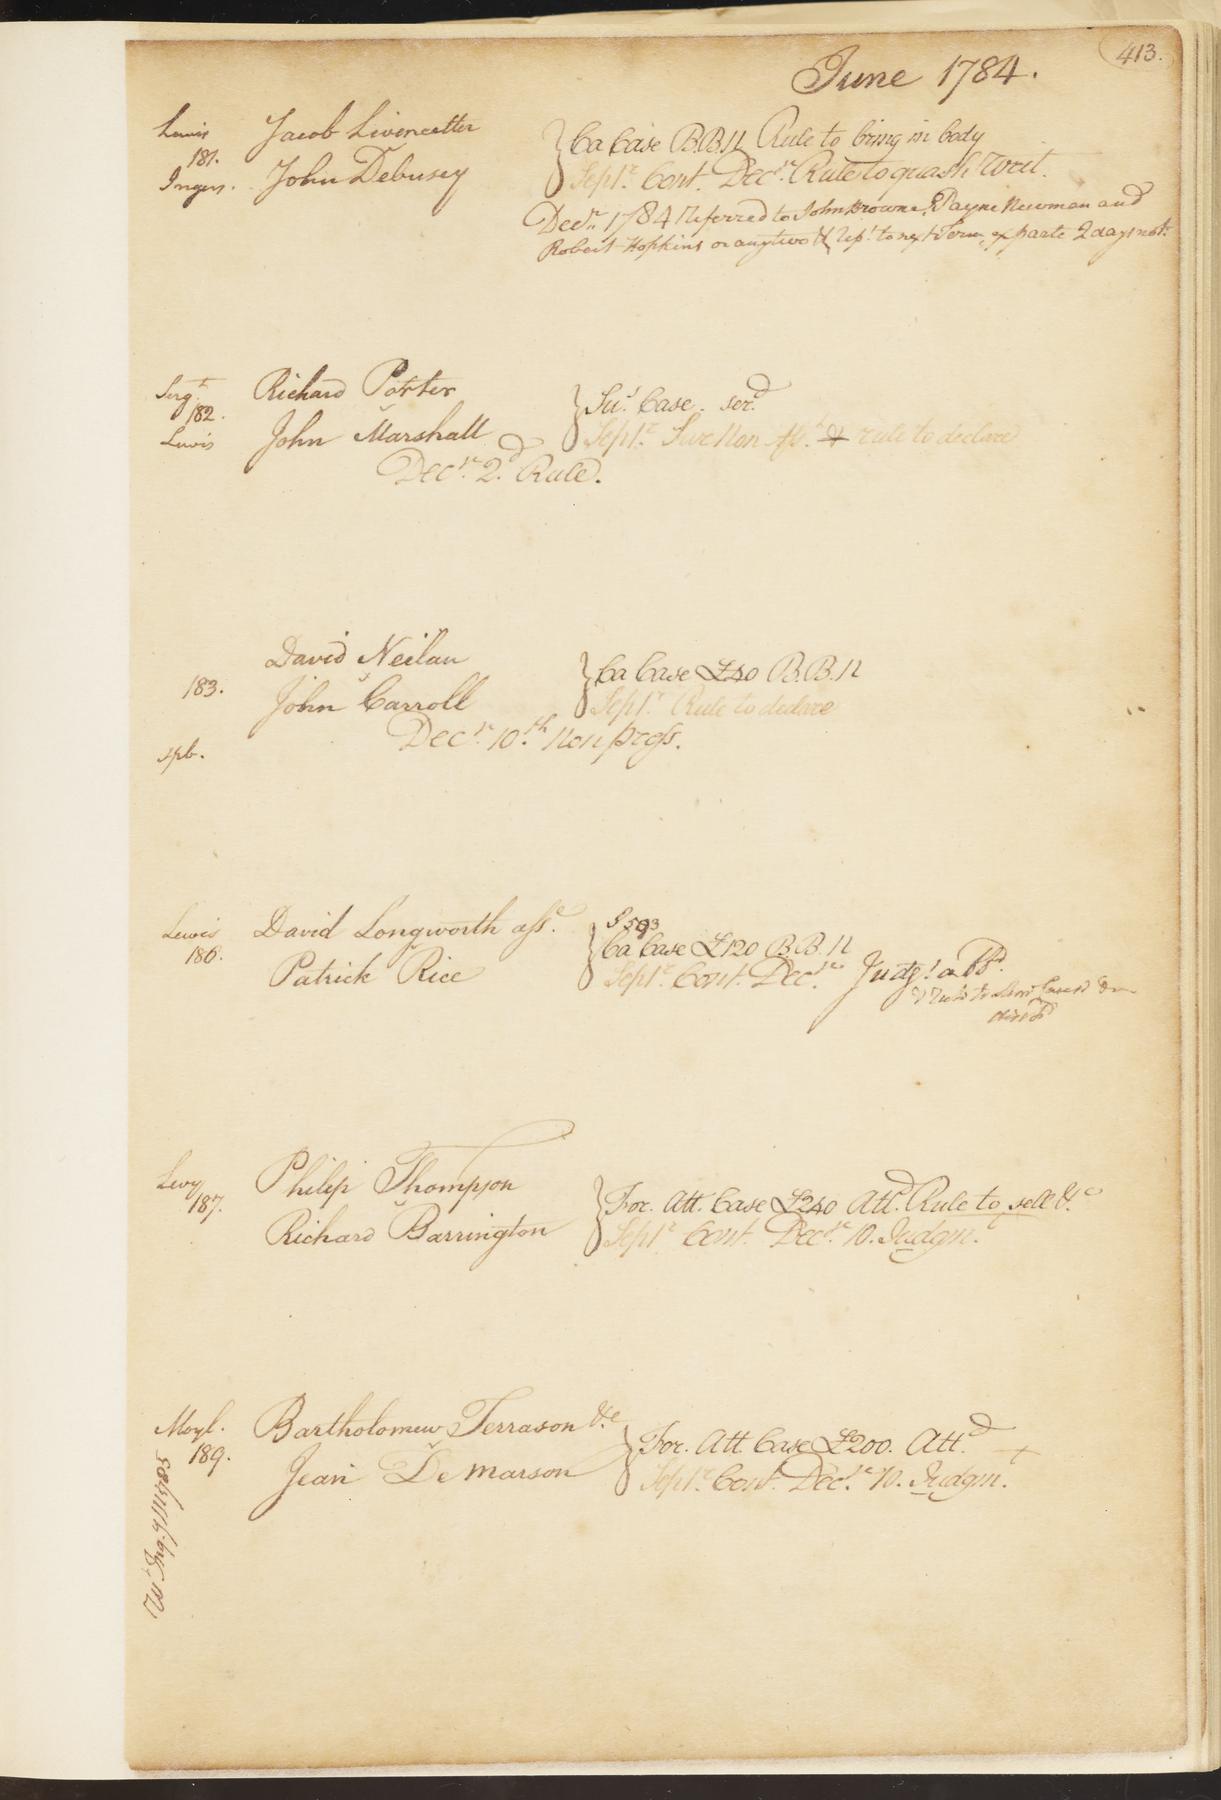 413.
June 1784.
Lewis Jacob Livencetter Ca Case B.B.N Rule to bring in body
181.
Ingers. John Debusey Sept.r Cont. Dec.r Rule to quash Writ.
Dec.r 1784 Referred to John Browne, Payne Newman and
Robert Hopkins or any two & Rep.t to next Term, ex parte 2 days not.
Serg.t Richard Porter Su.s Case. ser.d
182.
Lewis John Marshall Sept.r Sur Non rule to declare
Dec.r 2.d Rule.
David Neilan Ca Case £40 B.B.N
183. John Carroll Sept.r Rule to declare
Dec.r 10.th Non pross.
spb.
S 593
Lewis David Longworth ass.e Ca Case £120 B.B.N
186. Patrick Rice Sept.r Cont. Dec.r Judg.t a
Levy Philip Thompson For. Att. Case £240 Att.d Rule to sell &c
187. Richard Barrington Sept.r Cont. Dec.r 10. Judgm.t
Moyl. Bartholomew Terrason &c For. Att. Case £200. Att.d
189. Jean De Marson Sept.r Cont. Dec.r 10. Judgm.t